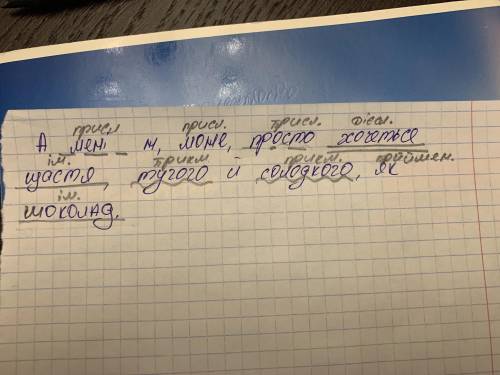 присл. присл. присл. дієсл.
А мені ж, може, просто хочеться
ім. прикм. прикм. приймен.
щастя, тугого й солодкого, як
ім.
шоколад.